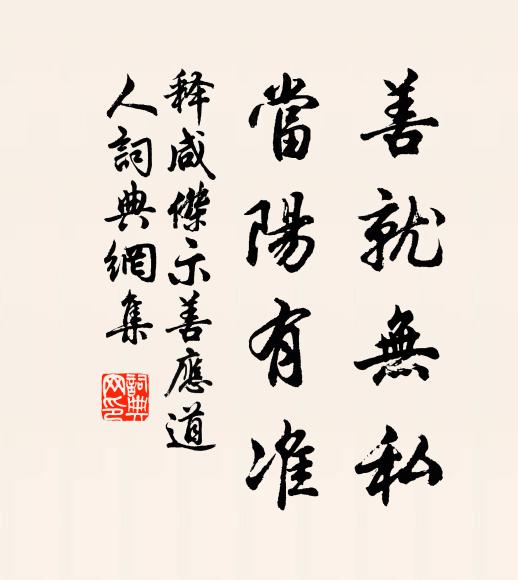 善就無私
當陽有准
释咸傑示善應道
人詞典網集
詞典
网印